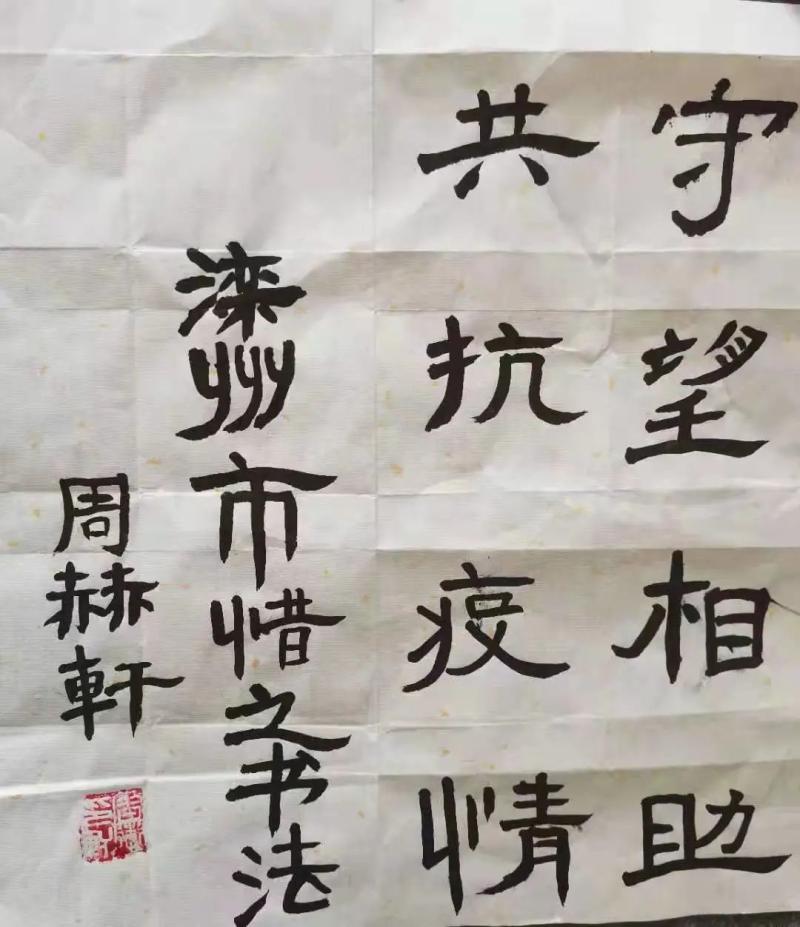 守望相助
共抗疫情
滦州市惜之书法
周赫軒